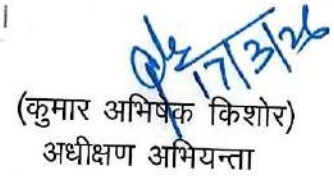 17/3/26
(कुमार अभिषेक किशोर)
अधीक्षण अभियन्ता